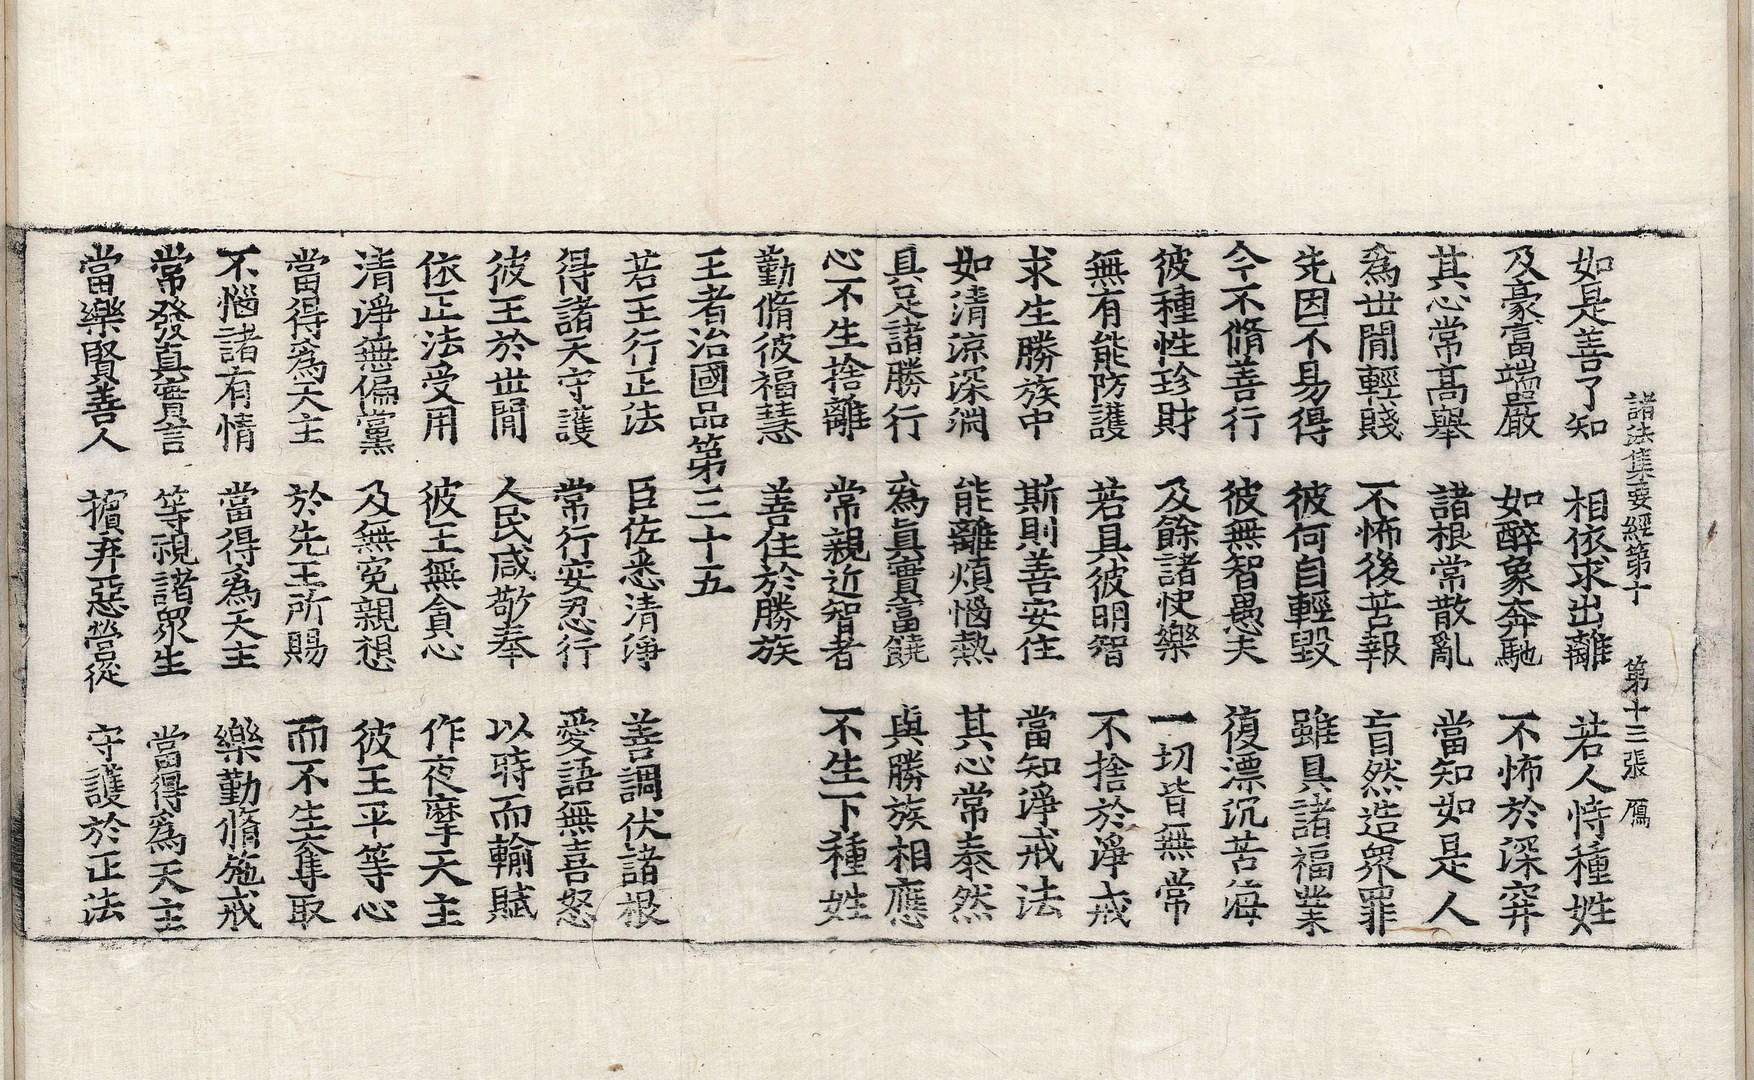 諸法集要經第十　第十三張　鴈
如是善了知　相依求出離　若人恃種姓
及豪富端嚴　如醉象奔馳　不怖於深穽
其心常高舉　諸根常散亂　當知如是人
為世間輕賤　不怖後苦報　盲然造眾罪
先因不易得　彼何自輕毀　雖具諸福業
今不脩善行　彼無智愚夫　復漂沉苦海
彼種性珍財　及餘諸快樂　一切皆無常
無有能防護　若具彼明智　不捨於淨戒
求生勝族中　斯則善安住　當知淨戒法
如清涼深淵　能離煩惱熱　其心常泰然
具足諸勝行　為真實富饒　與勝族相應
心不生捨離　常親近智者　不生下種姓
勤脩彼福慧　善住於勝族
王者治國品第三十五
若王行正法　臣佐悉清淨　善調伏諸根
得諸天守護　常行安忍行　愛語無喜怒
彼王於世間　人民咸敬奉　以時而輸賦
依正法受用　彼王無貪心　作夜摩天主
清淨無偏黨　及無冤親想　彼王平等心
當得為天主　於先王所賜　而不生奪取
不惱諸有情　當得為天主　樂勤脩施戒
常發真實言　等視諸眾生　當得為天主
當樂賢善人　擯弃惡營從　守護於正法